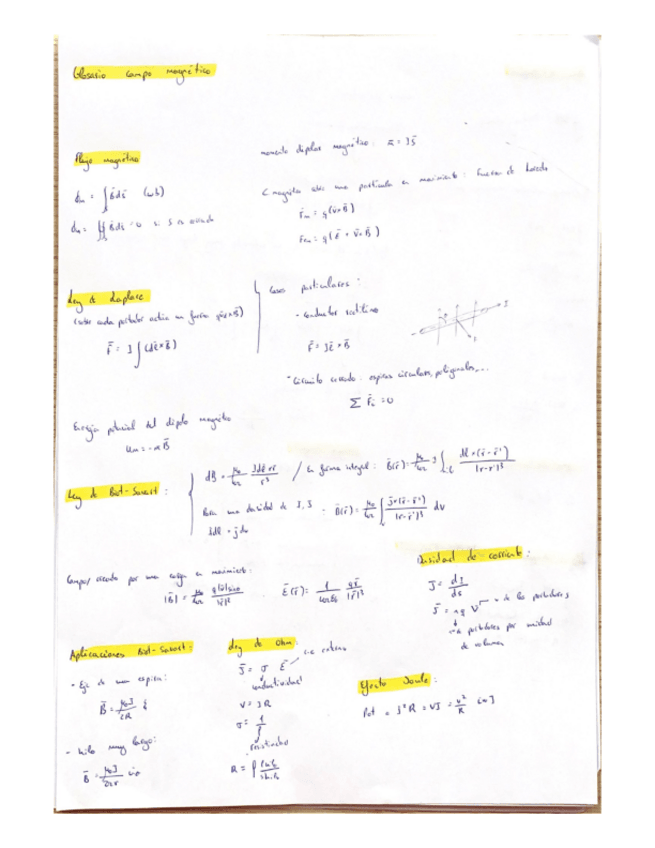 Glosario campo magnético
Flujo magnético
Φm = ∫ B̄ ds̄ (wb)
Φm = ∯ B̄ds̄ = 0 si S es cerrado
momento dipolar magnético: m̄ = I S̄
C magnético sobre una partícula en movimiento: Fuerza de Lorentz
F̄m = q(v̄×B̄)
F̄em = q(Ē + v̄×B̄)
Ley de Laplace
(sobre cada portador actúa una fuerza q v̄×B̄)
F̄ = I ∫(dl̄×B̄)
Casos particulares:
- Conductor rectilíneo
F̄ = I l̄ × B̄
I
- Circuito cerrado: espiras circulares, poligonales,...
∑ F̄i = 0
Energía potencial del dipolo magnético
Um = -m B̄
Ley de Biot-Savart:
dB̄ = μ0/4π I dl̄ × r̄/r³ / En forma integral: B̄(r̄) = μ0/4π I ∫ dl̄×(r̄-r̄')/|r-r'|³
Para una densidad de I, J : B̄(r̄) = μ0/4π ∫ J̄×(r̄-r̄')/|r-r'|³ dv
Idl = jdv
Campo creado por una carga en movimiento:
|B̄| = μ0/4π Ē(r̄) = 1/4πε0 q r̄/|r̄|³
Densidad de corriente:
J = dI/ds
J̄ = nq v̄ → v de los portadores
nº de portadores por unidad
de volumen
Aplicaciones Biot-Savart:
- Eje de una espira:
B̄ = μ0I/2R
- hilo muy largo:
B̄ = μ0I/2πr
Ley de Ohm:
J̄ = σ Ē externo
conductividad
V = IR
σ = 1/ρ
resistividad
R = ρ
Efecto Joule:
Pot = I²R = VI = V²/R